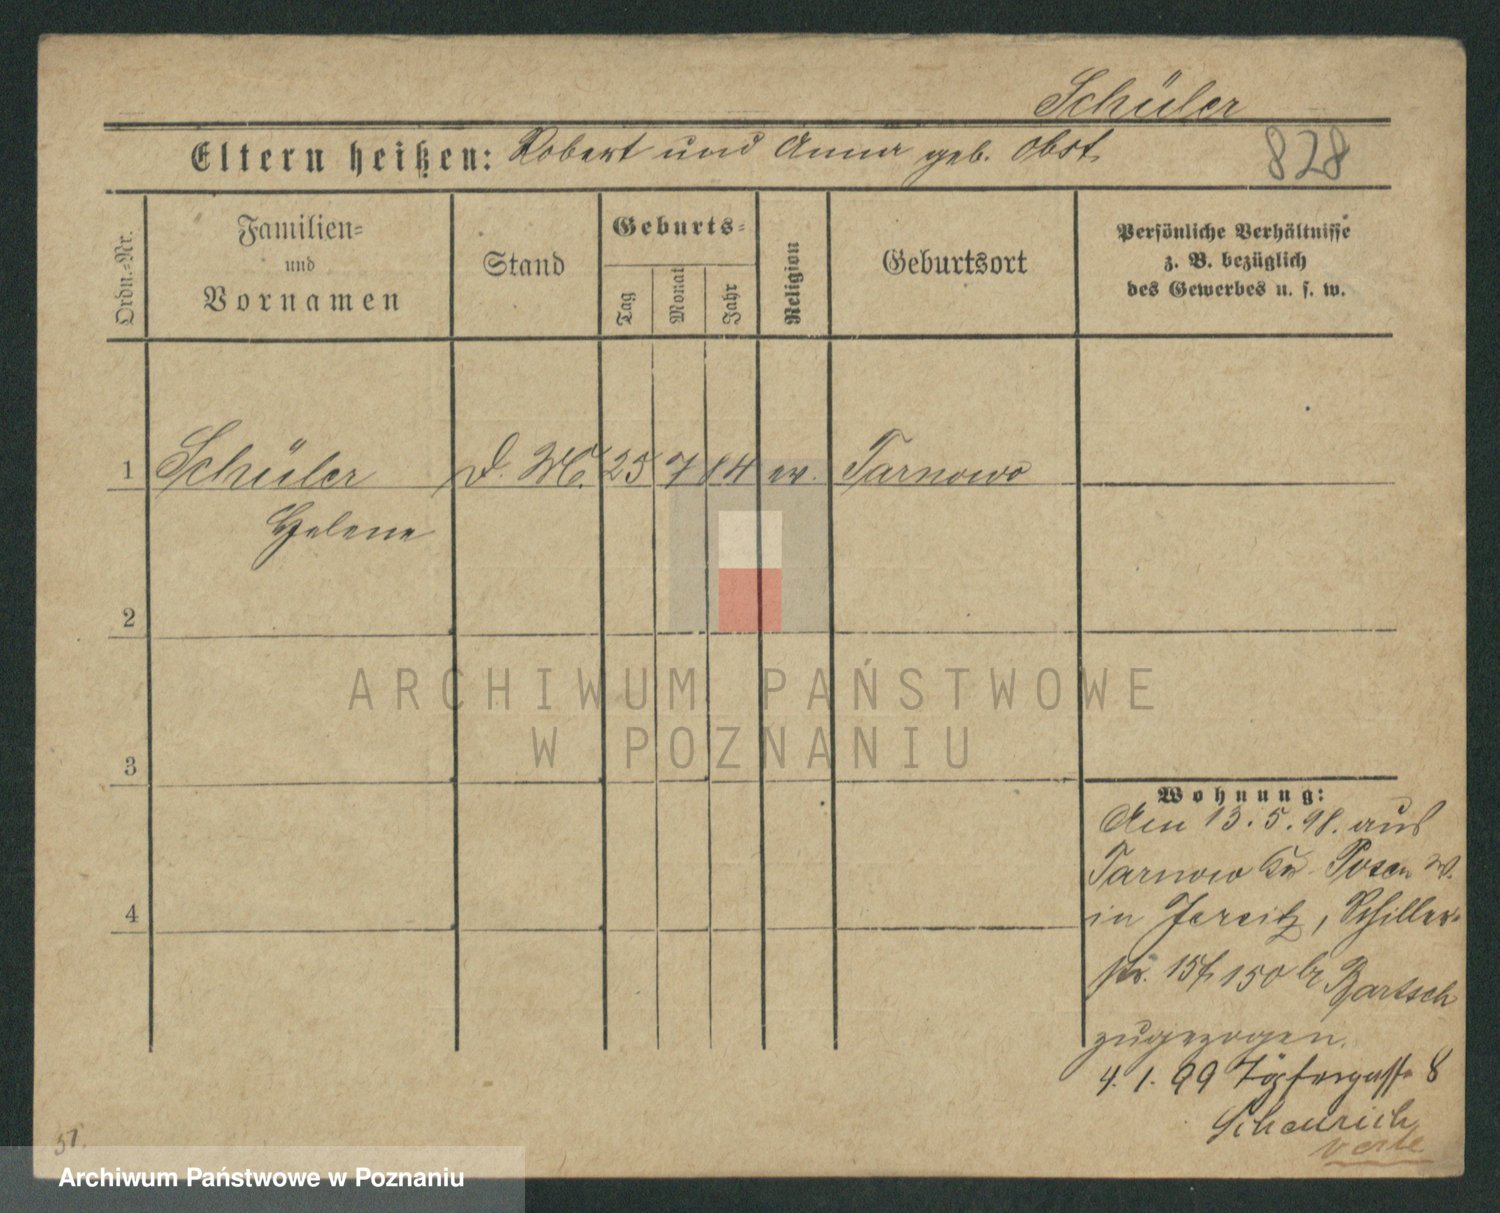 Schüler
Eltern heißen: Robert und Anna geb. Obst.
828
Ordn.-Nr.
Familien- und Vornamen
Stand
Geburts-
Tag
Monat
Jahr
Religion
Geburtsort
Persönliche Verhältnisse
z. B. bezüglich
des Gewerbes u. s. w.
1 Schüler D. M. 25 7 84 ev. Tarnowo
Helene
2
ARCHIWUM PAŃSTWOWE
W POZNANIU
3
Wohnung:
Am 13.5.98. aus
Tarnowo Posen W.
in Jersitz, Schiller-
str. 15 b/ Bartsch
zugezogen.
4
4.1.99 Töpfergasse 8
Scheurich
verte
51.
Archiwum Państwowe w Poznaniu